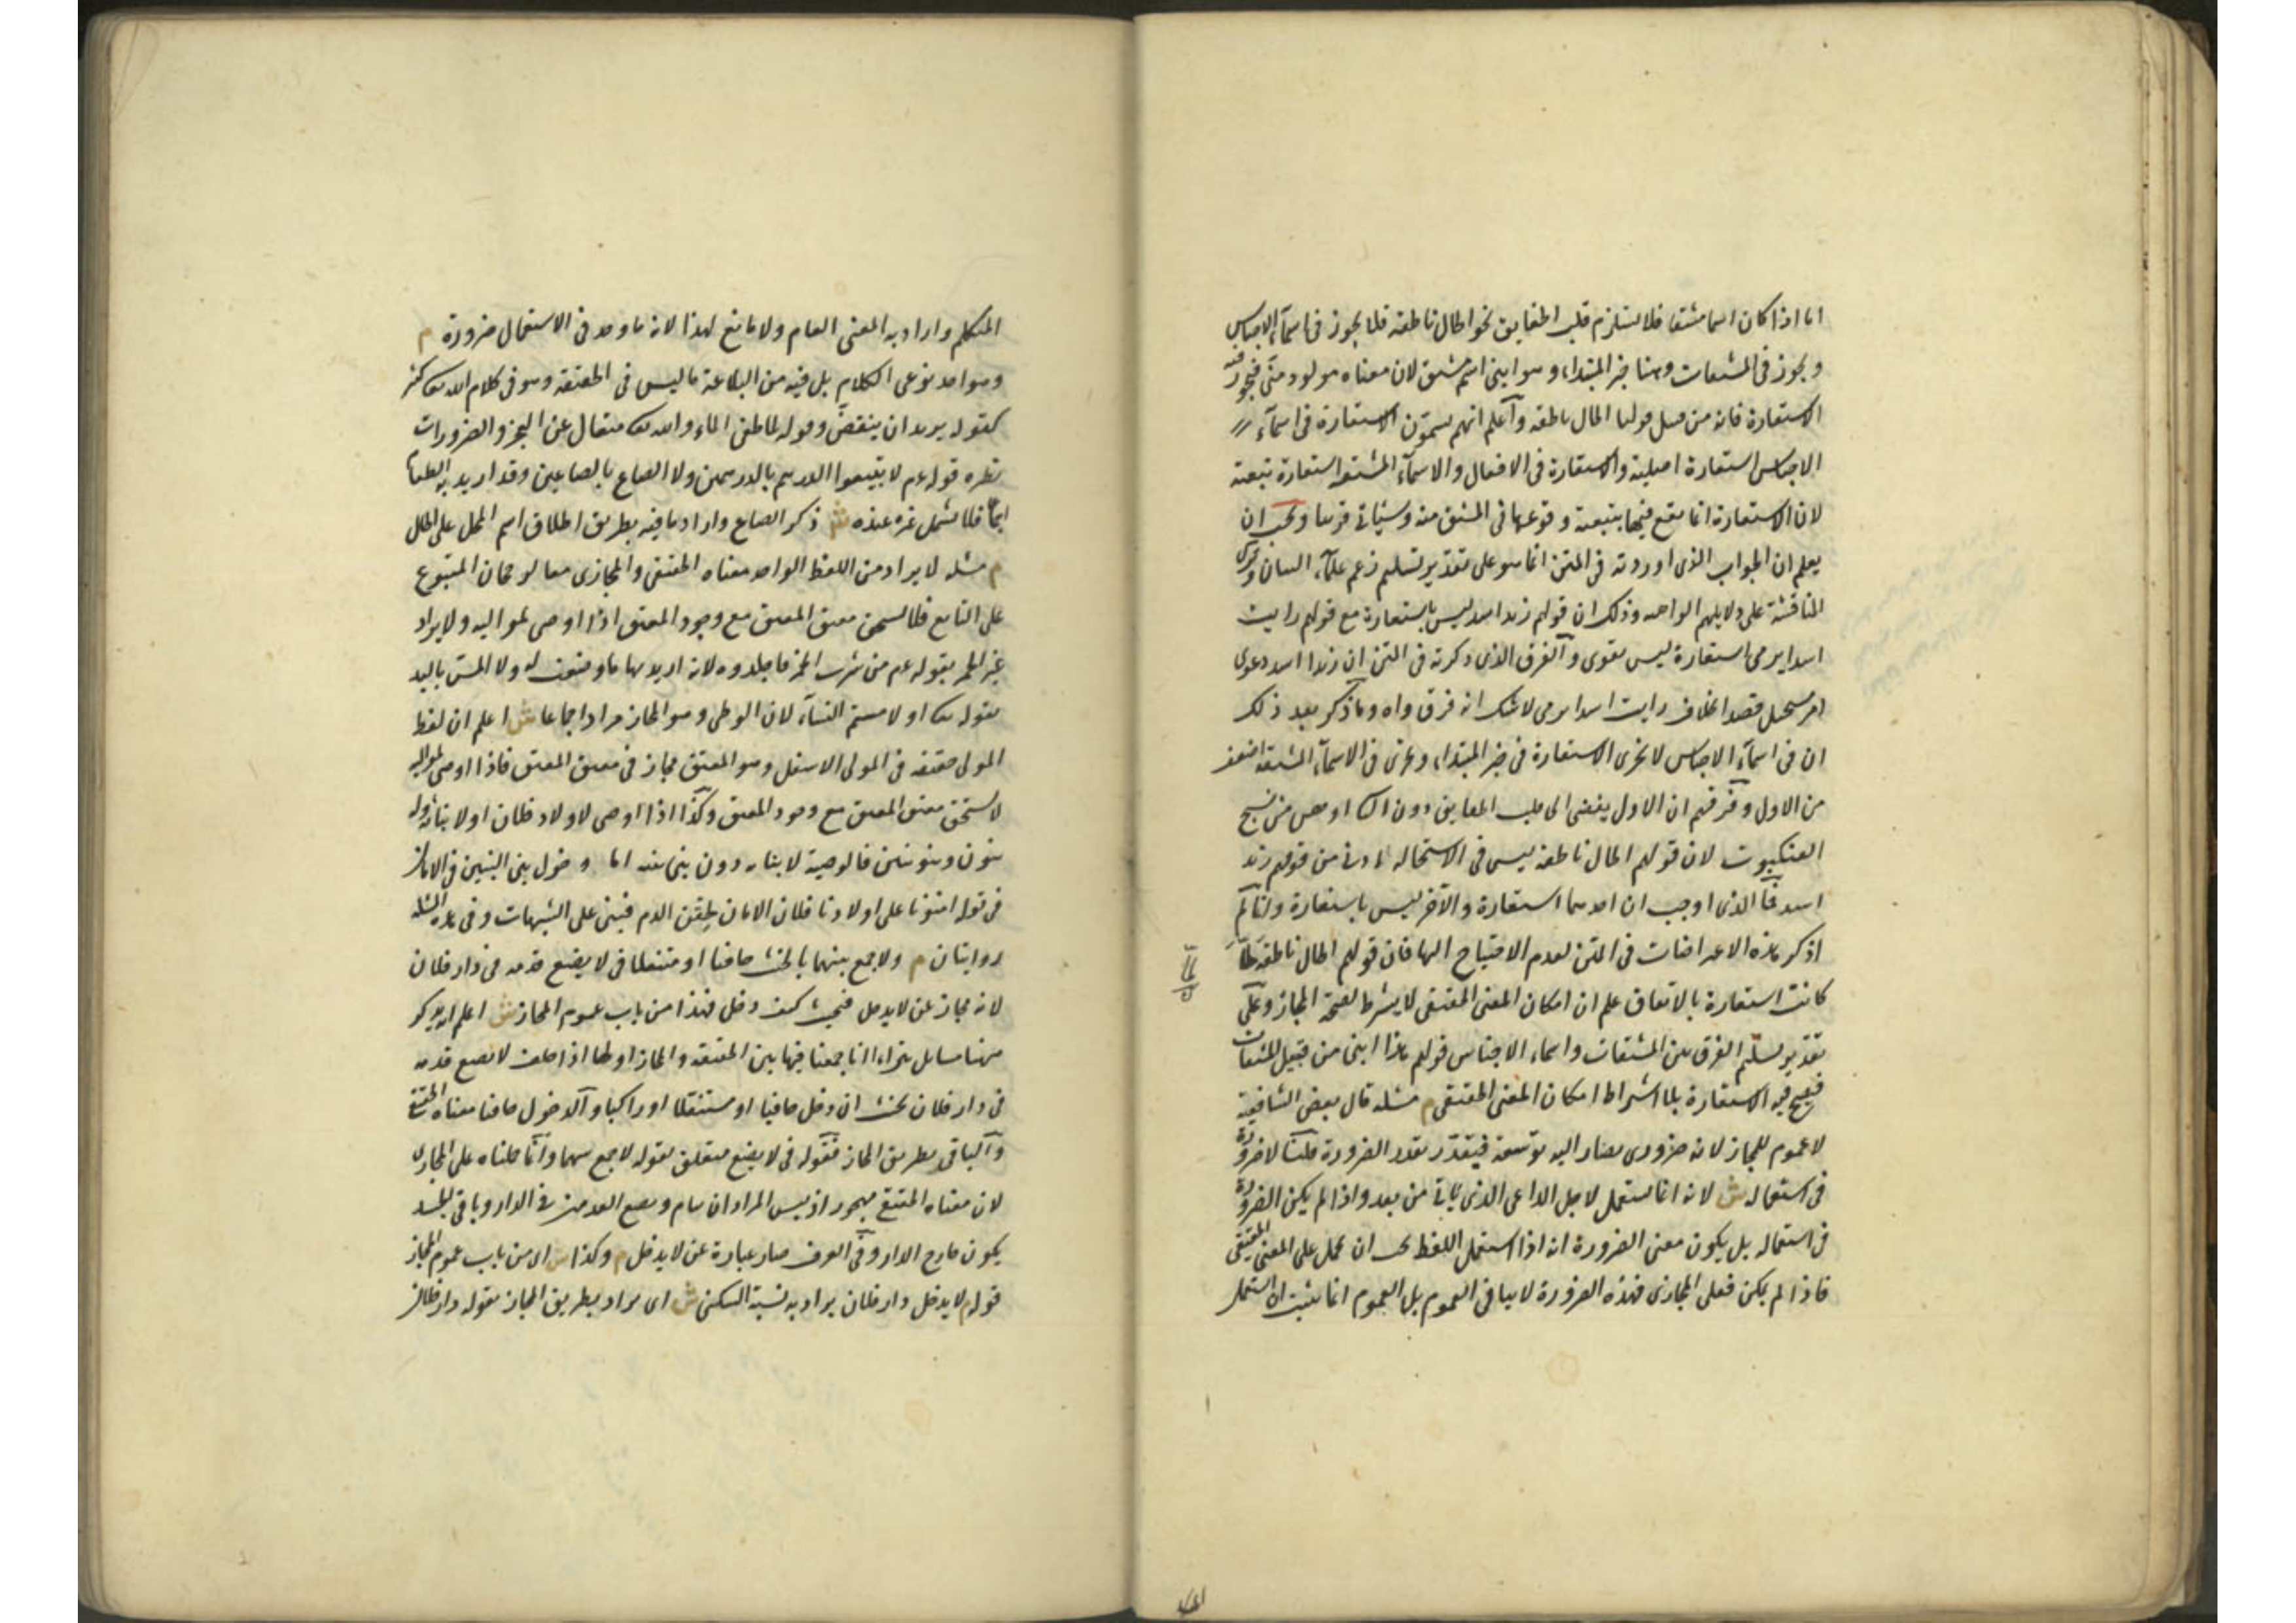 اما اذا كان اسما مشتقا فلا يستلزم قلب الحقايق نحو الحال ناطقة فلا يجوز فى اسماء الاجناس
ويجوز فى المشتقات وهنا خبر المبتداء وهو ابنى اسم مشتق لان معناه مولود منى فيجوز فيه
الاستعارة فانه من قبيل قولنا الحال ناطقة واعلم انهم يسمون الاستعارة فى اسماء
الاجناس استعارة اصلية والاستعارة فى الافعال والاسماء المشتقة استعارة تبعية
لان الاستعارة انما تقع فيها بتبعية وقوعها فى المشتق منه وسيأتى قريبا ويجب ان
يعلم ان الجواب الذى اوردته فى المتن انما هو على تقدير تسليم زعم علماء البيان وترك
المناقشة على دلايلهم الواهية وذلك ان قولهم زيد اسد ليس باستعارة مع قولهم رايت
اسدا يرمى استعارة ليس بقوى والفرق الذى ذكرته فى المتن ان زيدا اسد دعوى
امر مستحيل قصدا بخلاف رايت اسدا يرمى لا شك انه فرق واه وما ذكر بعد ذلك
ان فى اسماء الاجناس لا تجرى الاستعارة فى خبر المبتداء وتجرى فى الاسماء المشتقة اضعف
من الاول وفرقهم ان الاول يفضى الى قلب الحقايق دون الثانى اوهن من نسج
العنكبوت لان قولهم الحال ناطقة ليس فى الاستحالة ادنى من قولهم زيد
اسد فما الذى اوجب ان احدهما استعارة والآخر ليس باستعارة وانما لم
اذكر هذه الاعتراضات فى المتن لعدم الاحتياج اليها فان قولهم الحال ناطقة لما
كانت استعارة بالاتفاق علم ان امكان المعنى الحقيقى لا يشرط لصحة المجاز وعلى
تقدير تسليم الفرق بين المشتقات واسماء الاجناس قولهم هذا ابنى من قبيل المشتقات
فيصح فيه الاستعارة بلا اشتراط امكان المعنى الحقيقى م مسئلة قال بعض الشافعية
لا عموم للمجاز لانه ضرورى يصار اليه توسعة فيتقدر بقدر الضرورة قلنا لا ضرورة
فى استعماله ش لانه انما يستعمل لاجل الداعى الذى يأتى من بعد واذا لم يكن الضرورة
فى استعماله بل يكون معنى الضرورة انه اذا استعمل اللفظ يجب ان يحمل على المعنى الحقيقى
فاذا لم يكن فعلى المجازى فهذه الضرورة لا ينافى العموم بل العموم انما يثبت ان استعمل
المتكلم واراد به المعنى العام ولا مانع لهذا لانه ما وجد فى الاستعمال ضرورة م
وهو احد نوعى الكلام بل فيه من البلاغة ما ليس فى الحقيقة وهو فى كلام الله تعالى كثير
كقوله يريد ان ينقض وقوله لما طغى الماء والله تعالى متعال عن العجز والضرورات
نظيره قوله عم لا تبيعوا الدرهم بالدرهمين ولا الصاع بالصاعين وقد اريد به الطعام
اجماعا فلا يشمل غيره عنده ش ذكر الصاع واراد ما فيه بطريق اطلاق اسم المحل على الحال
م مسئلة لا يراد من اللفظ الواحد معناه الحقيقى والمجازى معا لرجحان المتبوع
على التابع فلا يستحق معتق المعتق مع وجود المعتق اذا اوصى لمواليه ولا يراد
غير الخمر بقوله عم من شرب الخمر فاجلدوه لانه اريد بها ما وضعت له ولا المس باليد
بقوله تعالى او لامستم النساء لان الوطى وهو المجاز مراد اجماعا ش اعلم ان لفظ
المولى حقيقة فى المولى الاسفل وهو المعتق مجاز فى معتق المعتق فاذا اوصى لمواليه
لا يستحق معتق المعتق مع وجود المعتق وكذا اذا اوصى لاولاد فلان او لابنائه وله
بنون وبنو بنين فالوصية لابنائه دون بنى بنيه اما دخول بنى البنين فى الامان
فى قوله امنونا على اولادنا فلان الامان لحقن الدم فيبنى على الشبهات وفى هذه المسئلة
روايتان م ولا جمع بينهما بالحنث حافيا او متنعلا فى لا يضع قدمه فى دار فلان
لانه مجاز عن لا يدخل فيحنث كيف دخل فهذا من باب عموم المجاز ش اعلم انه يذكر
هنا مسائل يتراءى انا جمعنا فيها بين الحقيقة والمجاز اولها اذا حلف لا يضع قدمه
فى دار فلان يحنث ان دخل حافيا او متنعلا او راكبا والدخول حافيا معناه الحقيقى
والباقى بطريق المجاز فقوله فى لا يضع متعلق بقوله لا جمع بينهما وانما حملناه على المجازى
لان معناه الحقيقى مهجور اذ ليس المراد ان ينام ويضع القدمين فى الدار وباقى الجسد
يكون خارج الدار وفى العرف صار عبارة عن لا يدخل م وكذا ش اى من باب عموم المجاز
قوله م لا يدخل دار فلان يراد به نسبة السكنى ش اى يراد بطريق المجاز بقوله دار فلان